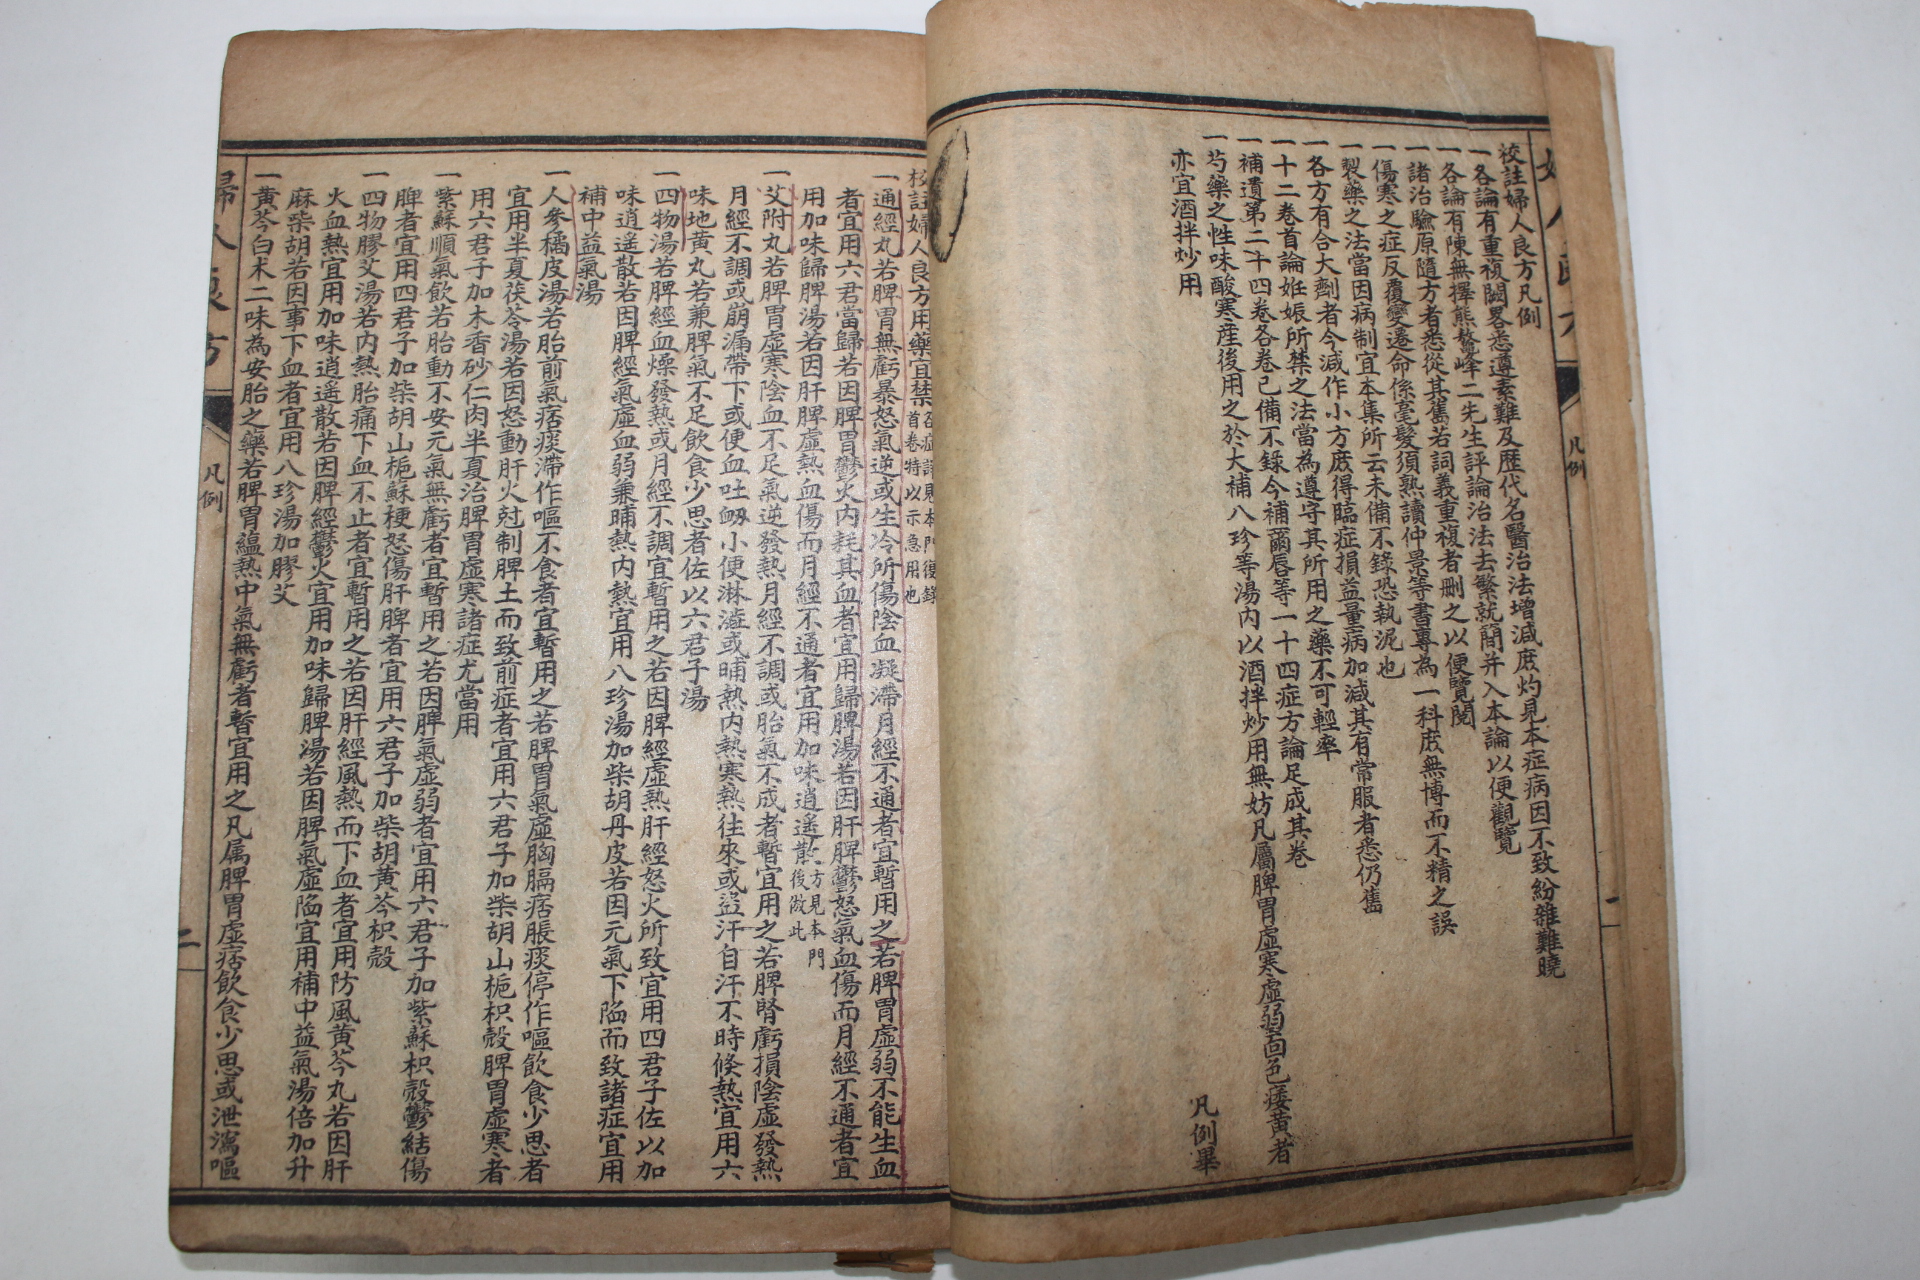 校註婦人良方凡例
一各論有重複闕畧悉遵素難及歷代名醫治法增減庶灼見本症病因不致紛雜難曉
一各論有陳無擇熊鰲峰二先生評論治法去繁就簡并入本論以便觀覽
一諸治驗原隨方者悉從其舊若詞義重複者刪之以便覽閱
一傷寒之症反覆變遷命係毫髮須熟讀仲景等書專為一科庶無博而不精之誤
一製藥之法當因病制宜本集所云未備不錄恐執泥也
一各方有合大劑者今減作小方庶得臨症損益量病加減其有常服者悉仍舊
一十二卷首論妊娠所禁之法當為遵守其所用之藥不可輕率
一補遺第二十四卷各卷已備不錄今補繭唇等一十四症方論足成其卷
一芍藥之性味酸寒産後用之於大補八珍等湯內以酒拌炒用無妨凡屬脾胃虛寒虛弱面色痿黃者
亦宜酒拌炒用
凡例畢
凡例
一
校註婦人良方用藥宜禁
首卷特以示急用也
一通經丸若脾胃無虧暴怒氣逆或生冷所傷陰血凝滯月經不通者宜暫用之若脾胃虛弱不能生血
者宜用六君當歸若因脾胃鬱火內耗其血者宜用歸脾湯若因肝脾鬱怒氣血傷而月經不通者宜
用加味歸脾湯若因肝脾虛熱血傷而月經不通者宜用加味逍遙散方見本門後倣此
一艾附丸若脾胃虛寒陰血不足氣逆發熱月經不調或胎氣不成者暫宜用之若脾腎虧損陰虛發熱
月經不調或崩漏帶下或便血吐衂小便淋瀝或晡熱內熱寒熱往來或盜汗自汗不時倏熱宜用六
味地黃丸若兼脾氣不足飲食少思者佐以六君子湯
一四物湯若脾經血燥發熱或月經不調宜暫用之若因脾經虛熱肝經怒火所致宜用四君子佐以加
味逍遙散若因脾經氣虛血弱兼晡熱內熱宜用八珍湯加柴胡丹皮若因元氣下陷而致諸症宜用
補中益氣湯
一人參橘皮湯若胎前氣痞痰滯作嘔不食者宜暫用之若脾胃氣虛胸膈痞脹痰停作嘔飲食少思者
宜用半夏茯苓湯若因怒動肝火尅制脾土而致前症者宜用六君子加柴胡山梔枳殼脾胃虛寒者
用六君子加木香砂仁肉半夏治脾胃虛寒諸症尤當用
一紫蘇順氣飲若胎動不安元氣無虧者宜暫用之若因脾氣虛弱者宜用六君子加紫蘇枳殼鬱結傷
脾者宜用四君子加柴胡山梔蘇梗怒傷肝脾者宜用六君子加柴胡黃芩枳殼
一四物膠艾湯若內熱胎痛下血不止者宜暫用之若因肝經風熱而下血者宜用防風黃芩丸若因肝
火血熱宜用加味逍遙散若因脾經鬱火宜用加味歸脾湯若因脾氣虛陷宜用補中益氣湯倍加升
麻柴胡若因事下血者宜用八珍湯加膠艾
一黃芩白朮二味為安胎之藥若脾胃蘊熱中氣無虧者暫宜用之凡属脾胃虛痞飲食少思或泄瀉嘔
凡例
二